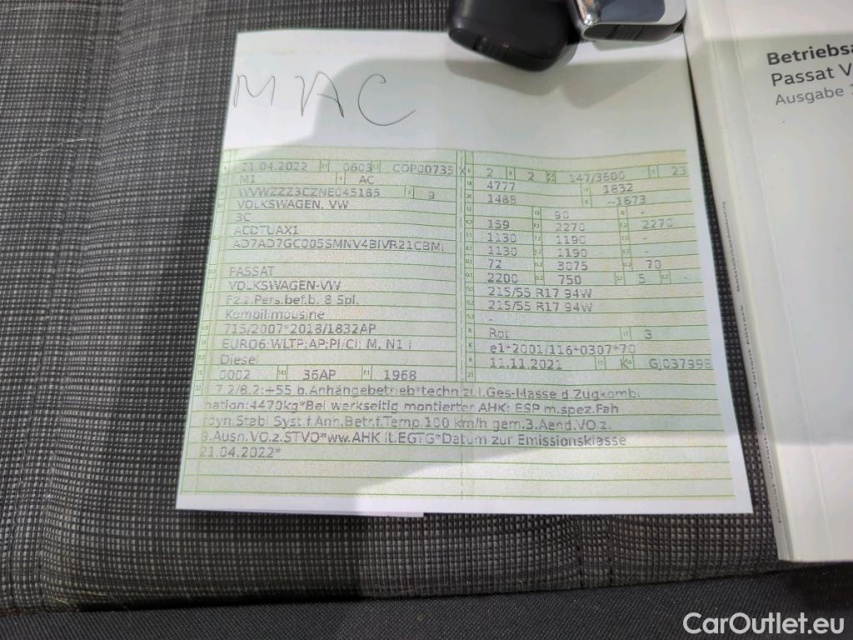 MAC
Betriebsa
Passat V
Ausgabe 1
21.04.2022 0603 COP00735 X 2 2 147/3500 23
M1 AC 4777 1832
WVWZZZ3CZNE045185 9 1488 -1673
VOLKSWAGEN, VW 90 -
3C 159 2270 2270
ACDTUAX1 1130 1190 -
AD7AD7GC005SMNV4BIVR21CBM 1130 1190 -
72 3075 70
PASSAT 2200 750 5 -
VOLKSWAGEN-VW 215/55 R17 94W
Fz.z.Pers.bef.b. 8 Spl. 215/55 R17 94W
Kombilimousine -
715/2007*2018/1832AP Rot 3
EURO6;WLTP;AP;PI/CI; M, N1 I e1*2001/116*0307*70
Diesel 11.11.2021 K GJ037993
0002 36AP 1968
7.2/8.2:+55 b.Anhängebetrieb*techn.zul.Ges-Masse d.Zugkombi
nation:4470kg*Bei werkseitig montierter AHK: ESP m.spez.Fah
rdyn.Stabi.Syst.f.Anh.Betr.f.Temp.100 km/h gem.3.Aend.VO z.
9.Ausn.VO.z.STVO*ww.AHK lt.EGTG*Datum zur Emissionsklasse
21.04.2022*
CarOutlet.eu